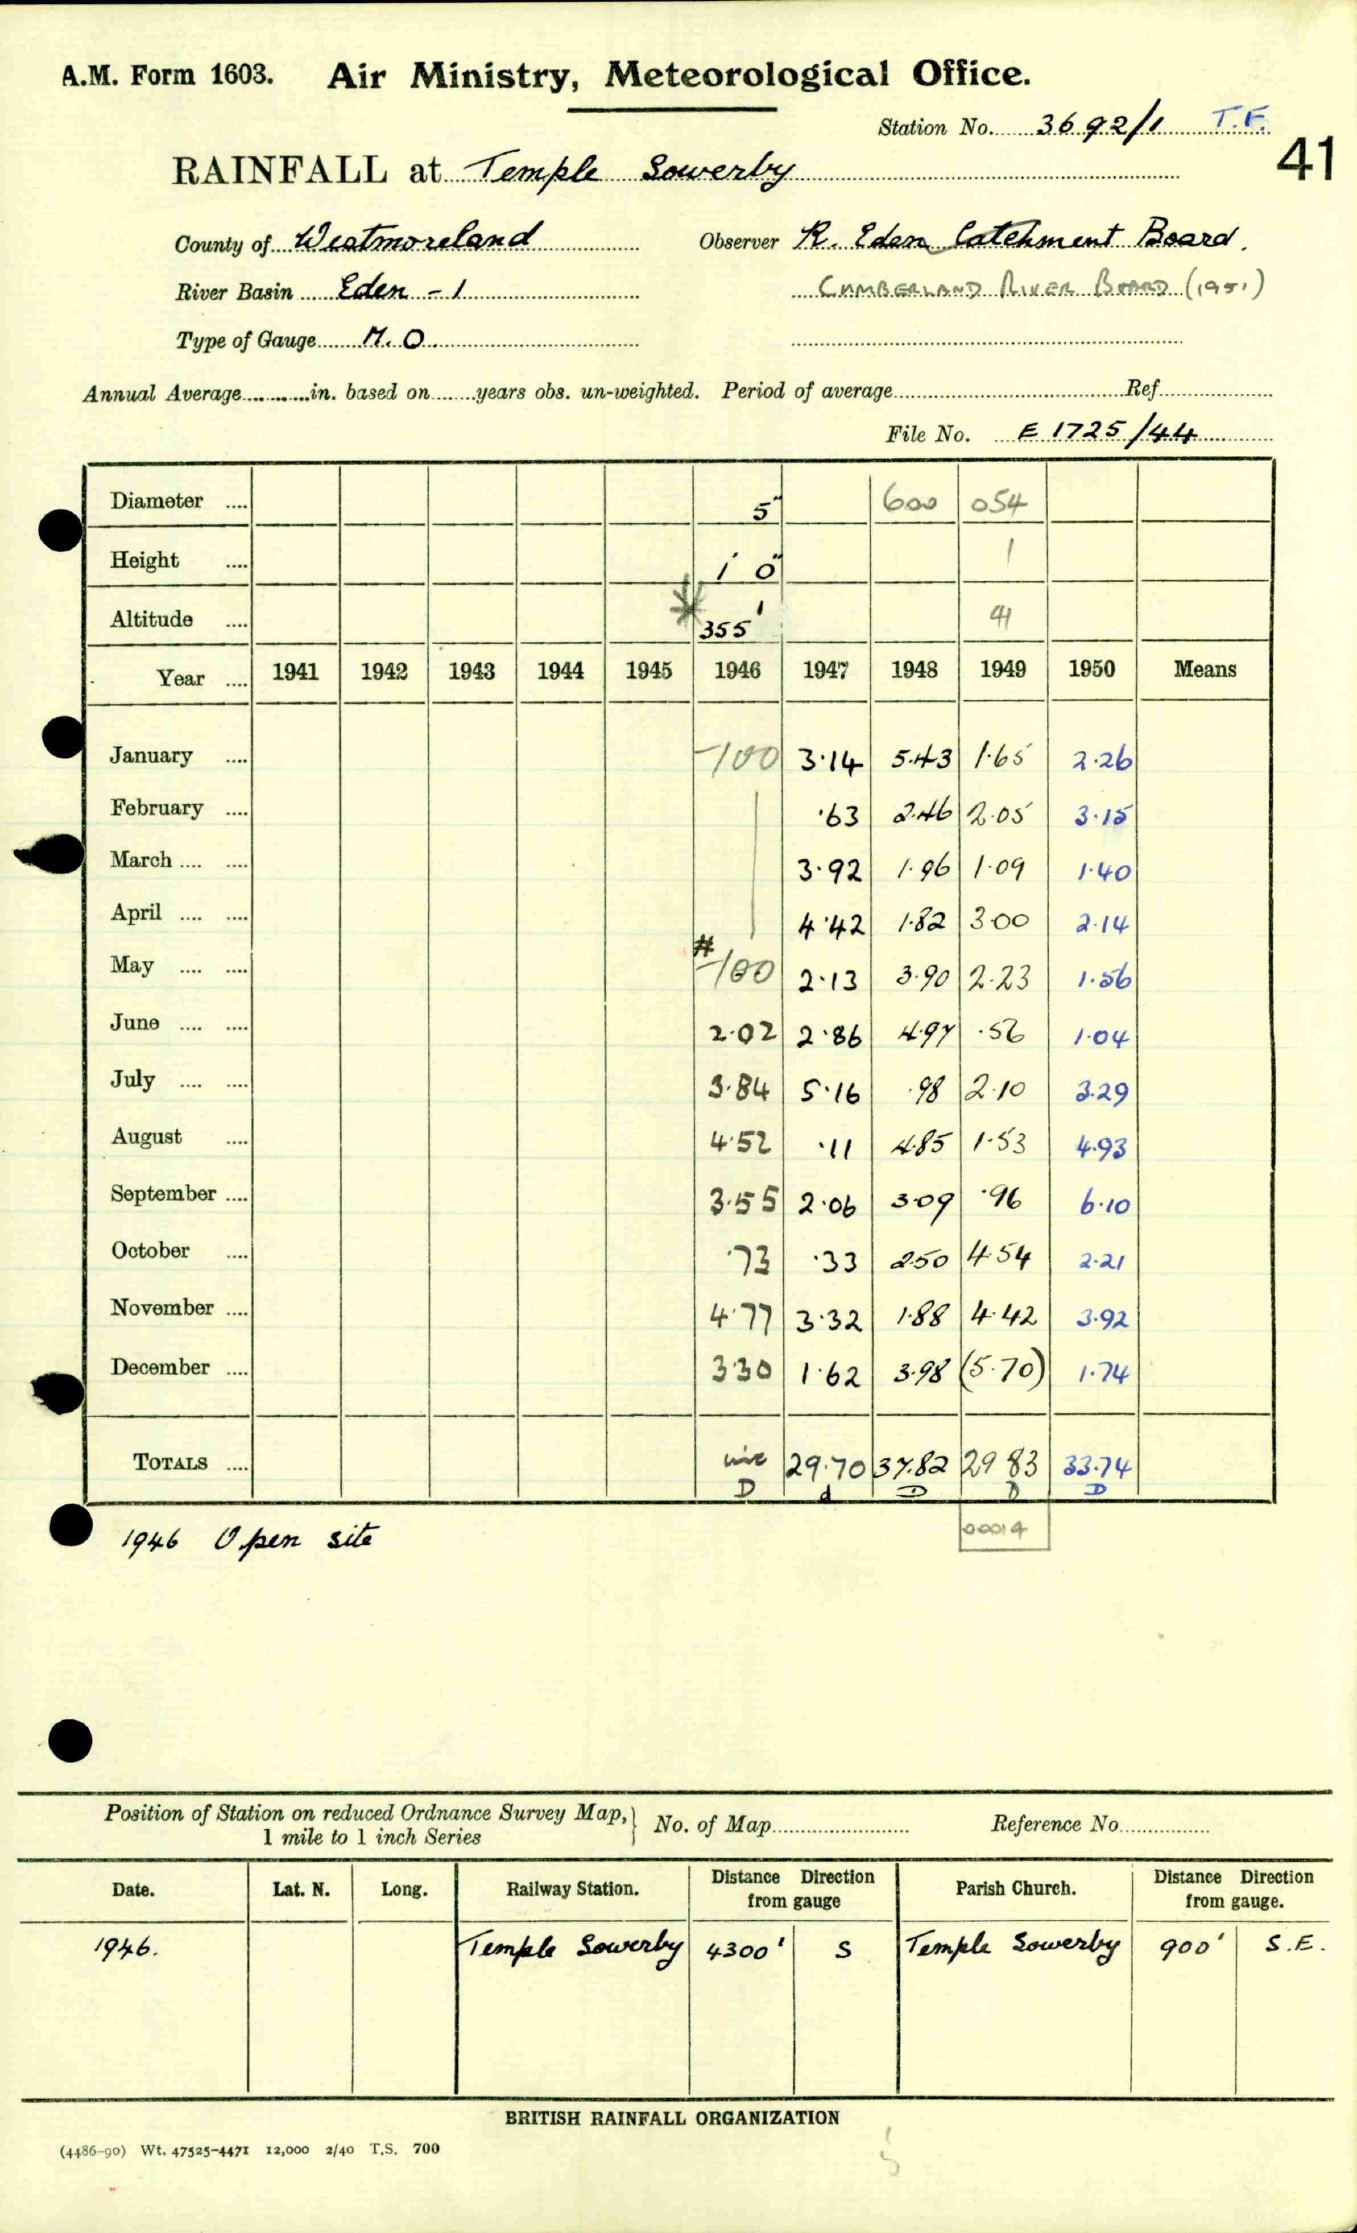 A.M. Form 1603. Air Ministry, Meteorological Office.
Station No. 3692/1 T.F.
41
RAINFALL at Temple Sowerby
County of Westmoreland Observer R. Eden Catchment Board.
River Basin Eden - 1 CUMBERLAND RIVER BOARD (1951)
Type of Gauge M.O.
Annual Average in. based on years obs. un-weighted. Period of average Ref
File No. E 1725/44
Diameter 5" 600 054
Height 1' 0" 1
Altitude 355' 91
Year 1941 1942 1943 1944 1945 1946 1947 1948 1949 1950 Means
January -100 3.14 5.43 1.65 2.26
February .63 2.46 2.05 3.15
March 3.92 1.96 1.09 1.40
April 4.42 1.82 3.00 2.14
May # -100 2.13 3.90 2.23 1.56
June 2.02 2.86 4.97 .56 1.04
July 3.84 5.16 .98 2.10 3.29
August 4.52 .11 4.85 1.53 4.93
September 3.55 2.06 3.09 .96 6.10
October .73 .33 2.50 4.54 2.21
November 4.77 3.32 1.88 4.42 3.92
December 3.30 1.62 3.98 (5.70) 1.74
TOTALS inc 29.70 37.82 29 83 33.74
D d D D D
00014
1946 Open site
Position of Station on reduced Ordnance Survey Map, No. of Map Reference No.
1 mile to 1 inch Series
Date. Lat. N. Long. Railway Station. Distance Direction from gauge Parish Church. Distance Direction from gauge.
1946. Temple Sowerby 4300' S Temple Sowerby 900' S.E.
BRITISH RAINFALL ORGANIZATION
(4486-90) Wt. 47525-4471 12,000 2/40 T.S. 700